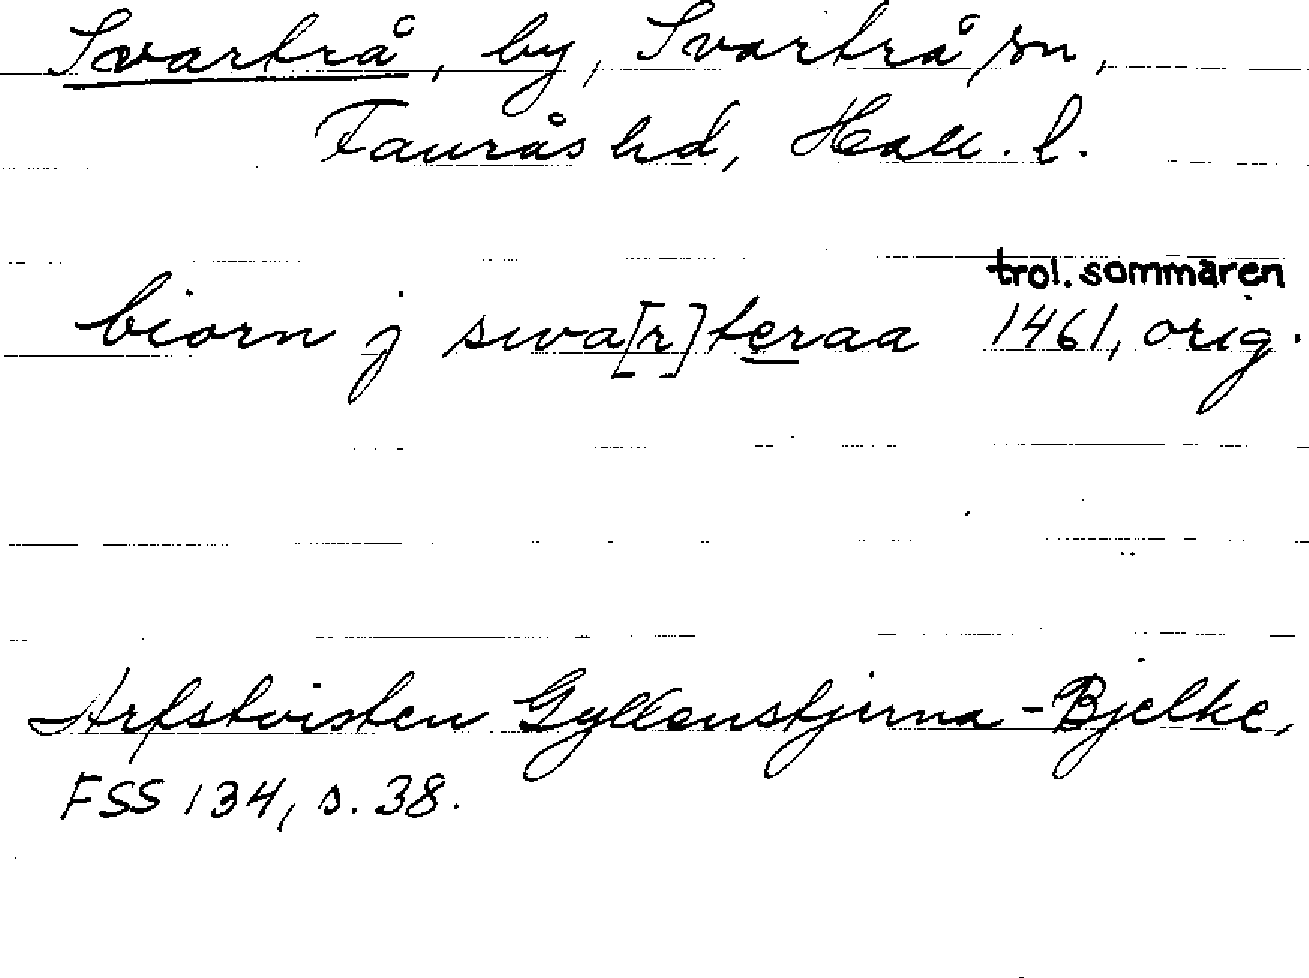 Svartrå, by, Svartrå sn,
Fauråshd, Hall. l.
trol. sommaren
biorn j swa[r]teraa 1461, orig.
Arfstvisten Gyllenstjerna-Bjelke,
FSS 134, s. 38.